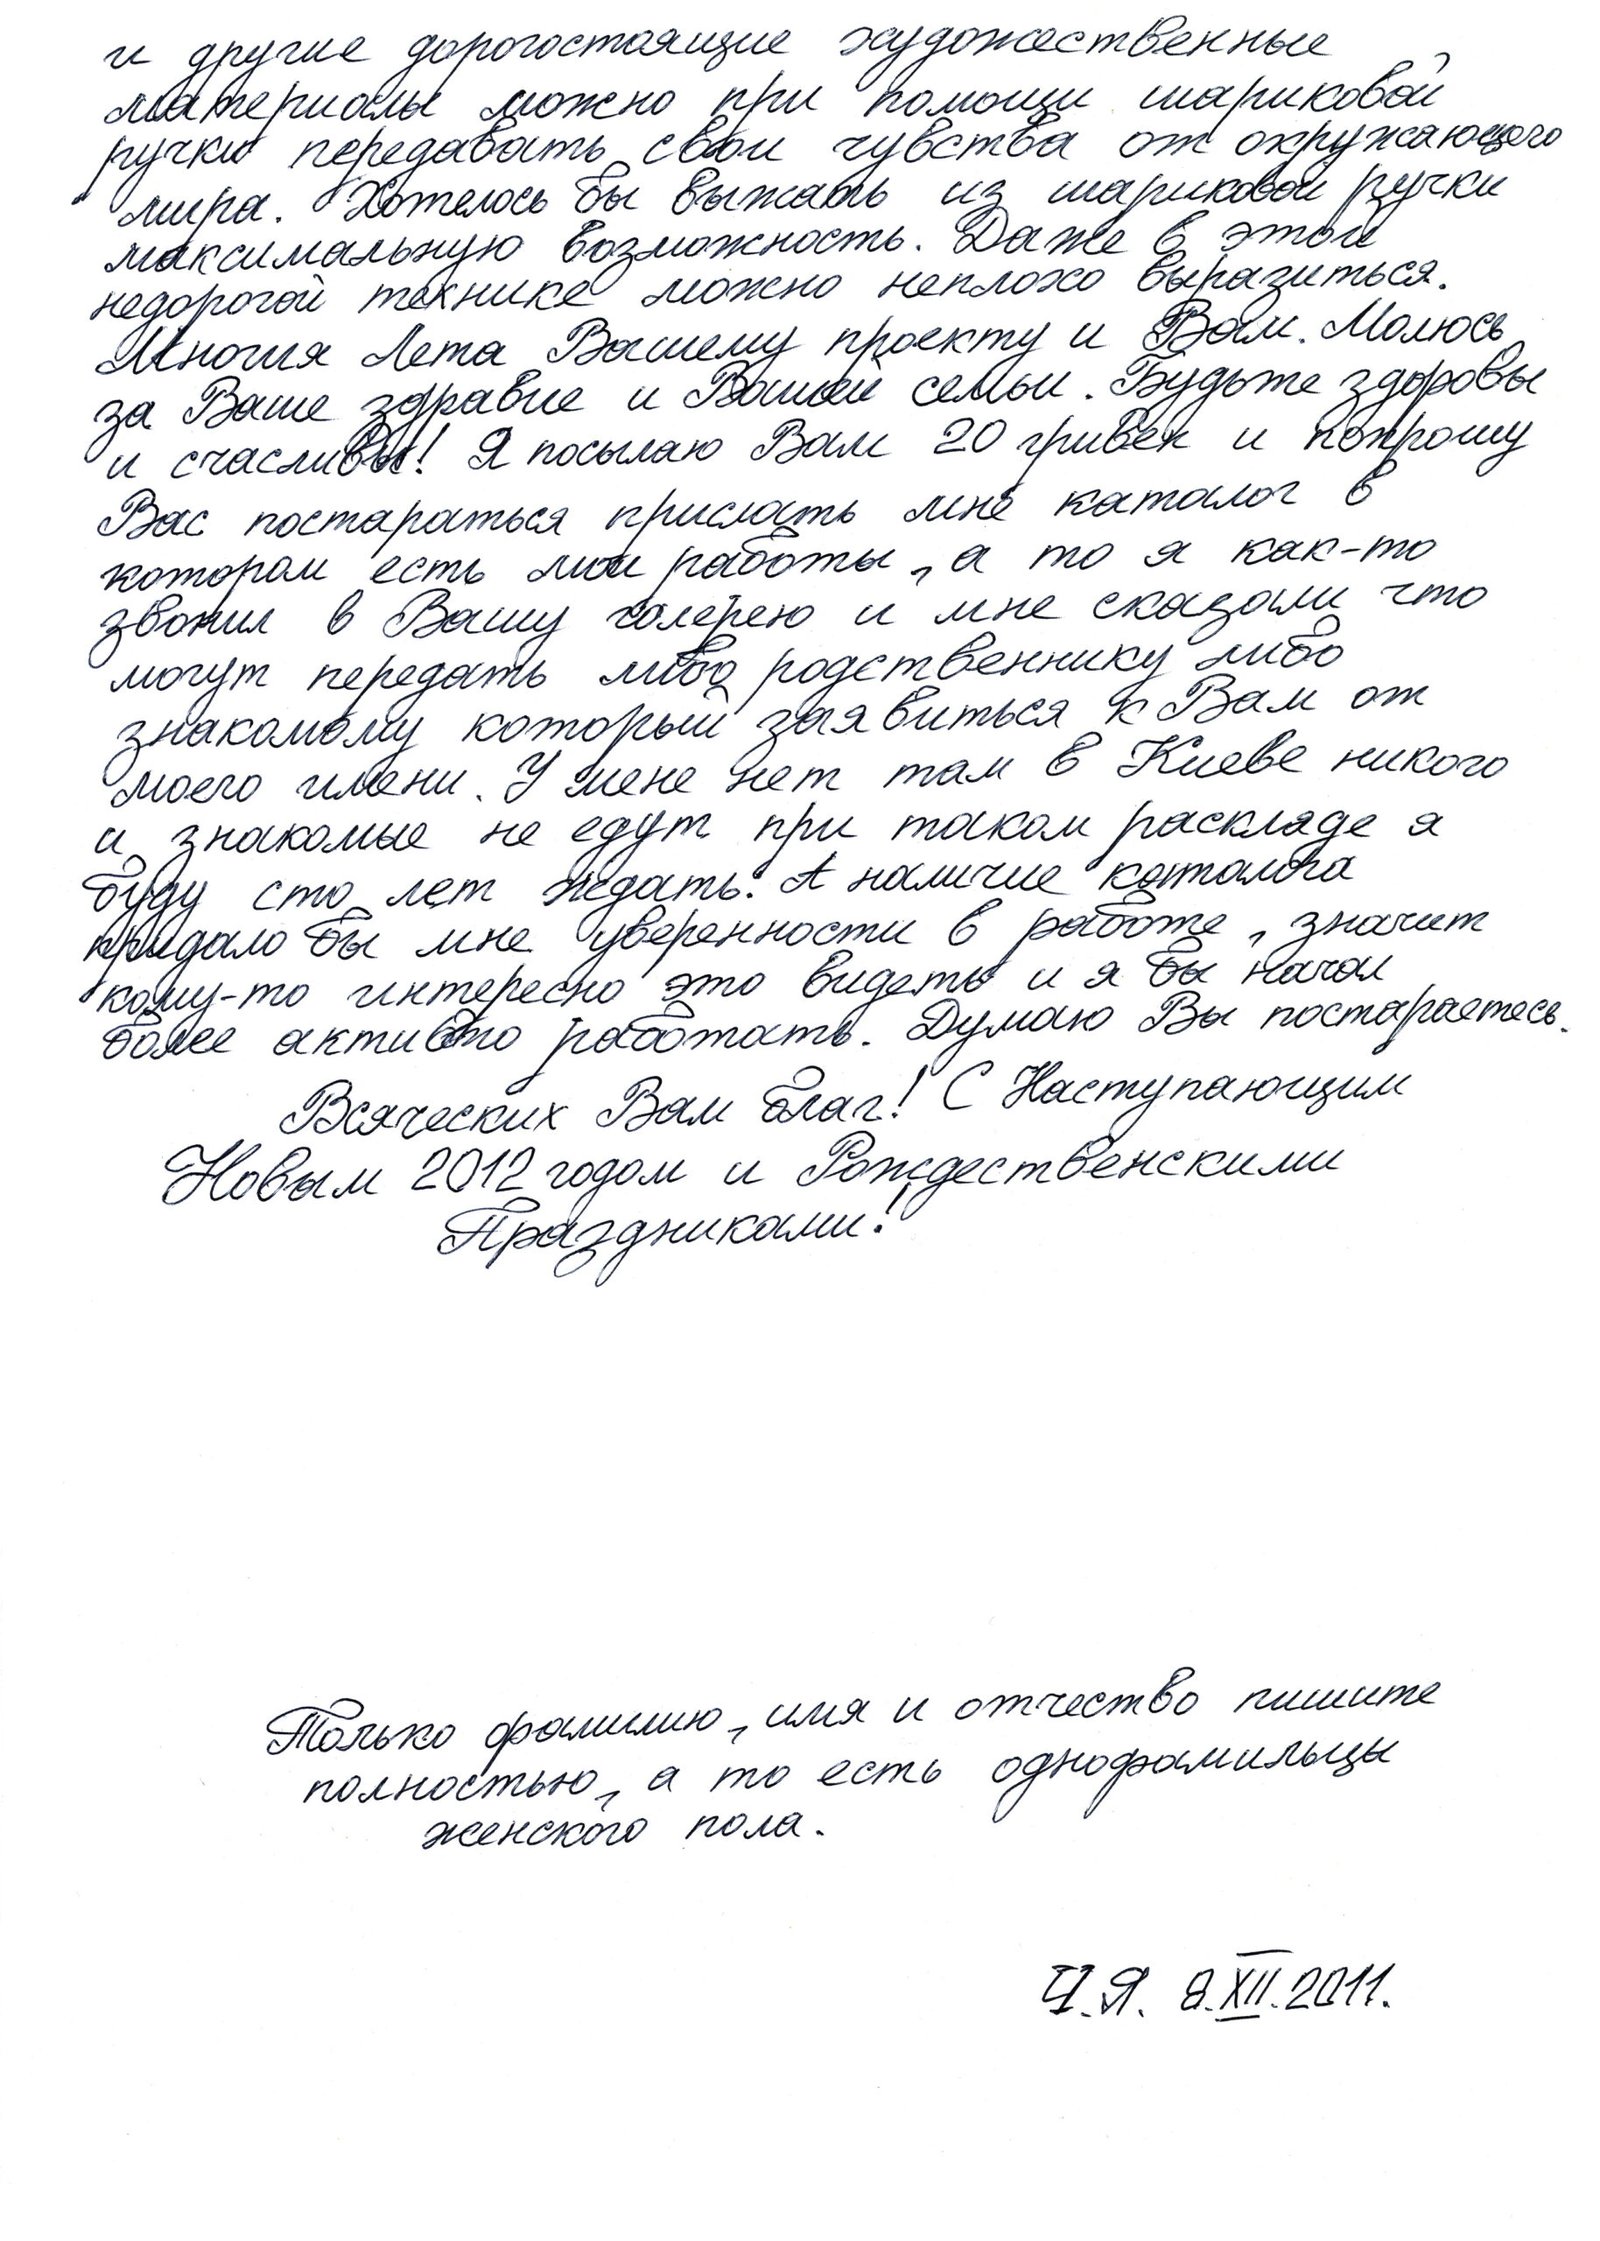 и другие дорогостоящие художественные
материалы можно при помощи шариковой
ручки передавать свои чувства от окружающего
мира. Хотелось бы выжать из шариковой ручки
максимальную возможность. Даже в этой
недорогой технике можно неплохо выразиться.
Многия Лета Вашему проекту и Вам. Молюсь
за Ваше здравие и Вашей семьи. Будьте здоровы
и счасливы! Я посылаю Вам 20 гривен и попрошу
Вас постараться прислать мне каталог в
котором есть мои работы, а то я как-то
звонил в Вашу галерею и мне сказали что
могут передать либо родственнику либо
знакомому который заявиться к Вам от
моего имени. У мене нет там в Киеве никого
и знакомые не едут при таком раскладе я
буду сто лет ждать. А наличие каталога
придало бы мне уверенности в работе, значит
кому-то интересно это видеть и я бы начал
более активно работать. Думаю Вы постараетесь.
Всяческих Вам благ! С Наступающим
Новым 2012 годом и Рождественскими
Праздниками!
Только фамилию, имя и отчество пишите
полностью, а то есть однофамильцы
женского пола.
Ч.Я. 8.XII.2011.